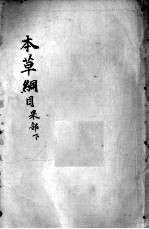 本草綱目果部下